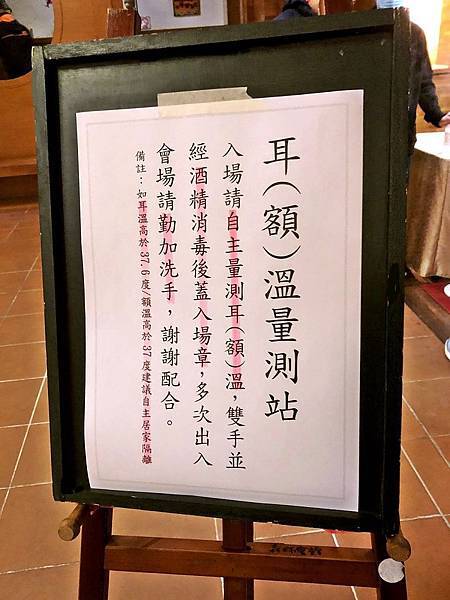 耳(額)溫量測站
入場請自主量測耳(額)溫，雙手並
經酒精消毒後蓋入場章，多次出入
會場請勤加洗手，謝謝配合。
備註：如耳溫高於37.6度/額溫高於37度建議自主居家隔離